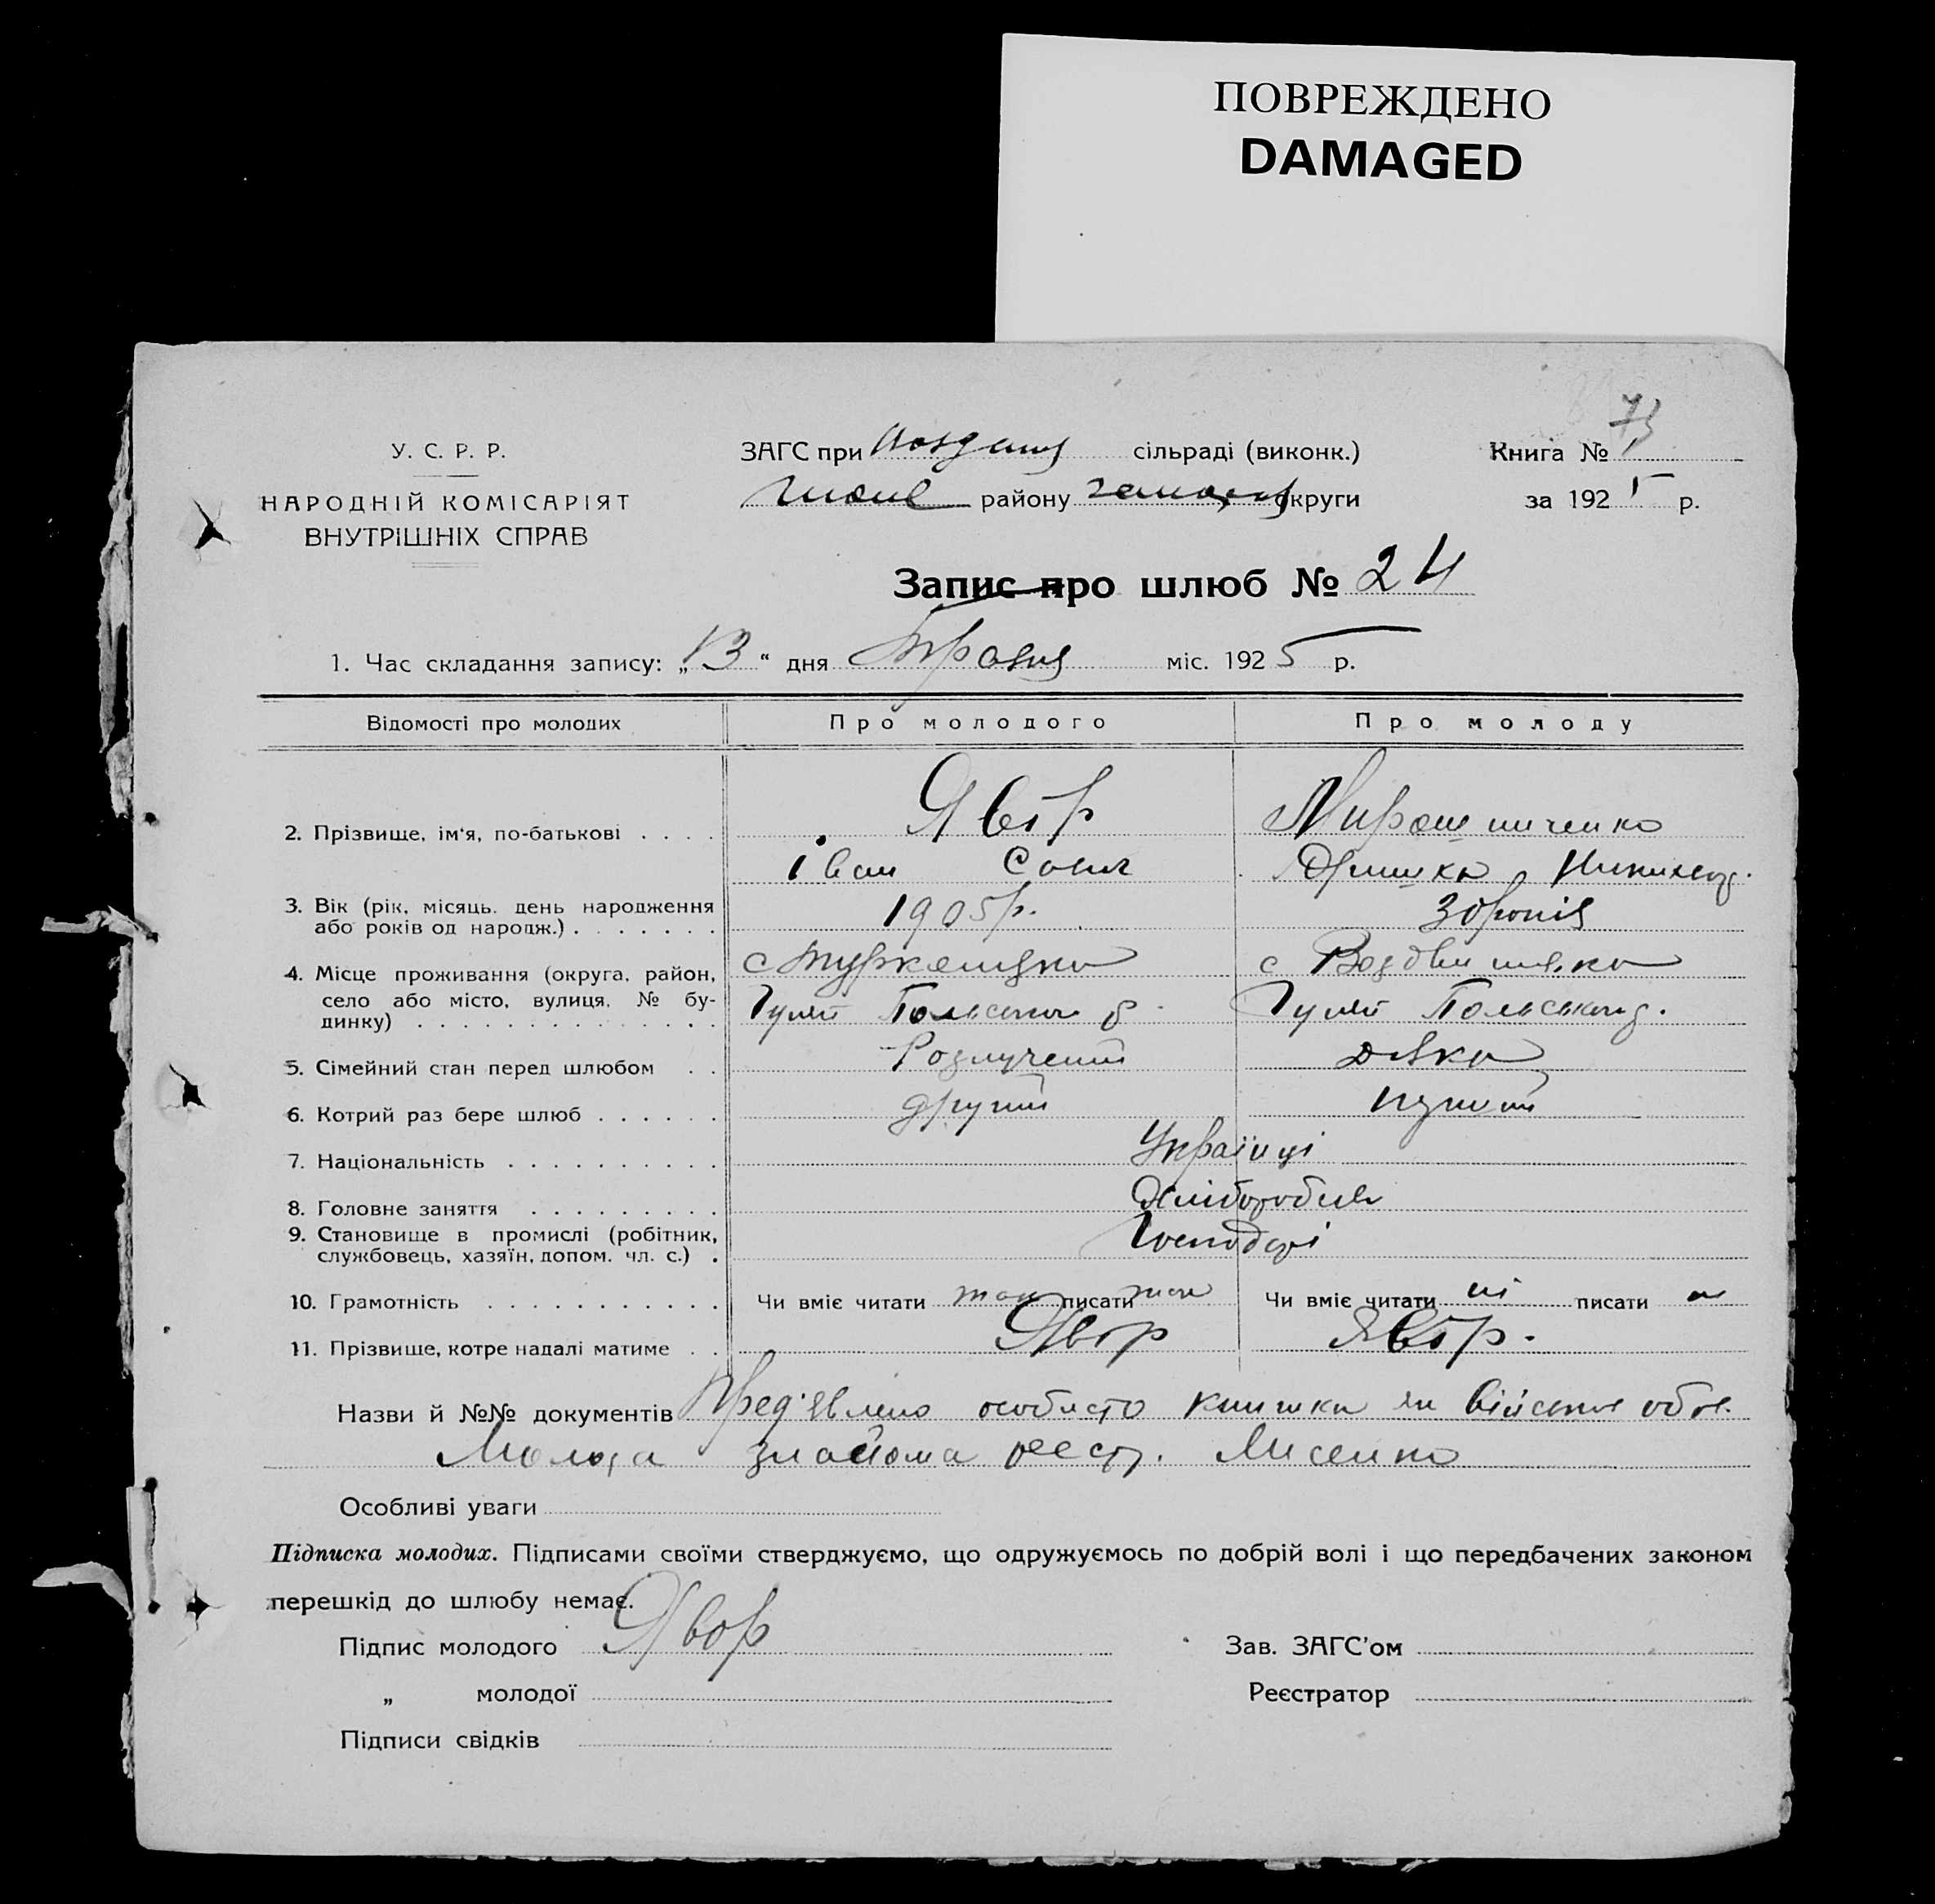 ПОВРЕЖДЕНО
DAMAGED
У. С. Р. Р.
НАРОДНІЙ КОМІСАРІЯТ
ВНУТРІШНІХ СПРАВ
ЗАГС при сільраді (виконк.)
району округи
Книга № 73
за 1925 р.
Запис про шлюб № 24
1. Час складання запису: „13“ дня Травня міс. 1925 р.
Відомості про молодих
Про молодого
Про молоду
2. Прізвище, ім'я, по-батькові . . . .
Явор
Іван
Мирошниченко
3. Вік (рік, місяць, день народження
або років од народж.) . . . . . . .
1905р.
4. Місце проживання (округа, район,
село або місто, вулиця, № бу-
динку) . . . . . . . . . . . . . .
с
Гуляй Польського р
с Воздвиженка
Гуляй Польськ
5. Сімейний стан перед шлюбом . .
Розлучений
дівка
6. Котрий раз бере шлюб . . . . . .
другий
7. Національність . . . . . . . . . .
Українці
8. Головне заняття . . . . . . . . .
Хлібороби
9. Становище в промислі (робітник,
службовець, хазяїн, допом. чл. с.) .
Господарі
10. Грамотність . . . . . . . . . . .
Чи вміє читати так писати так
Чи вміє читати ні писати ні
11. Прізвище, котре надалі матиме . .
Явор
Явор.
Назви й №№ документів Пред'явлено особисто книжка
Молода знайома реєстр. Лисенко
Особливі уваги
Підписка молодих. Підписами своїми стверджуємо, що одружуємось по добрій волі і що передбачених законом
перешкід до шлюбу немає.
Підпис молодого Явор
„ молодої
Підписи свідків
Зав. ЗАГС'ом
Реєстратор